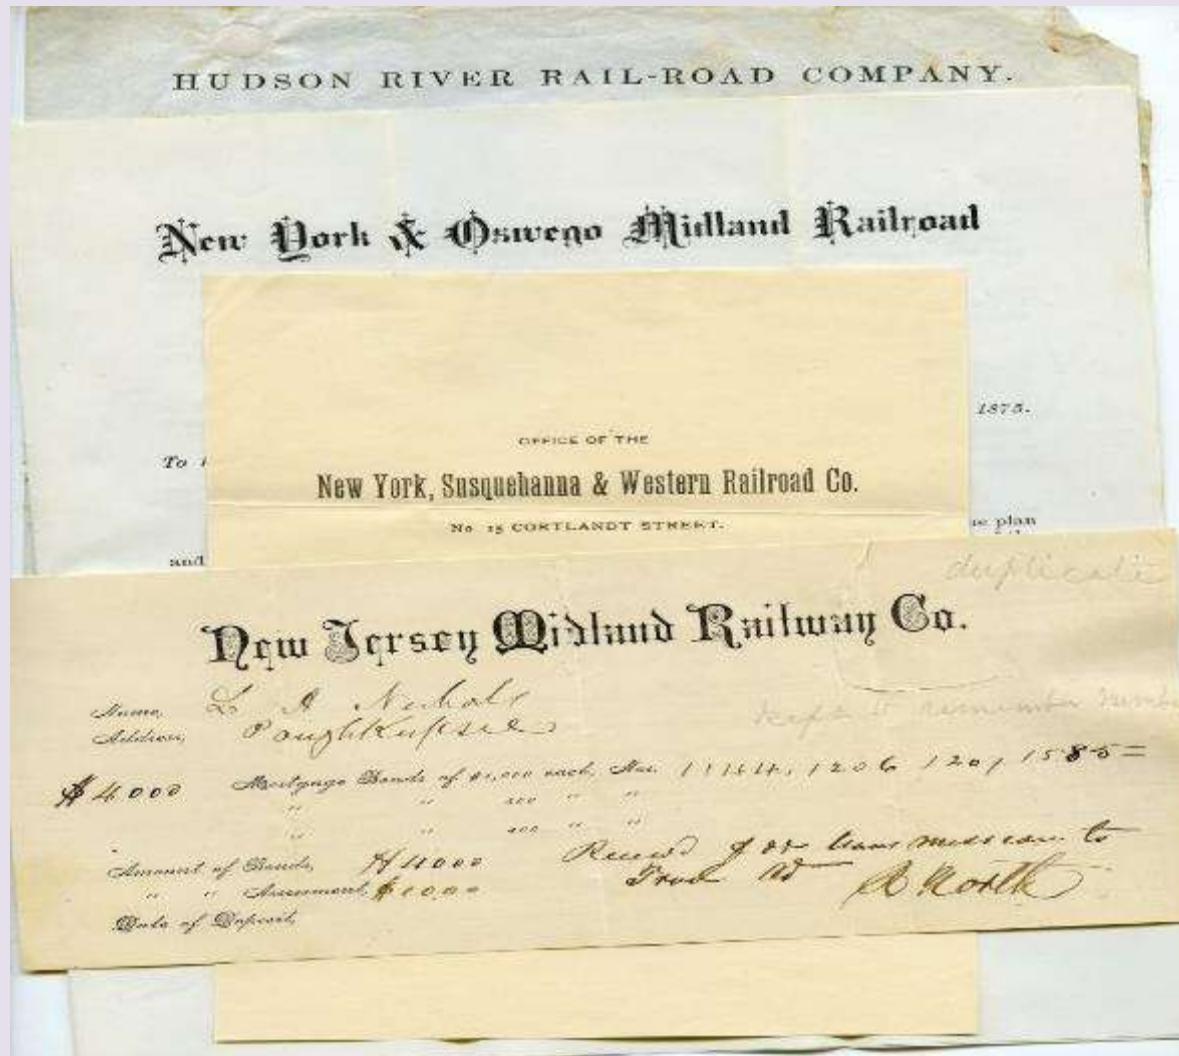 HUDSON RIVER RAIL-ROAD COMPANY.
New York & Oswego Midland Railroad
1875.
To
OFFICE OF THE
New York, Susquehanna & Western Railroad Co.
No 15 CORTLANDT STREET.
plan
and
duplicate
New Jersey Midland Railway Co.
Name, L A Nichols
Address, Poughkeepsie
remember
$4000 Mortgage Bonds of $1,000 each, Nos. 1206 1585
" " "
" " "
Amount of Bonds, $4000
to
" " Assessment, $1000 A North
Date of Deposit,